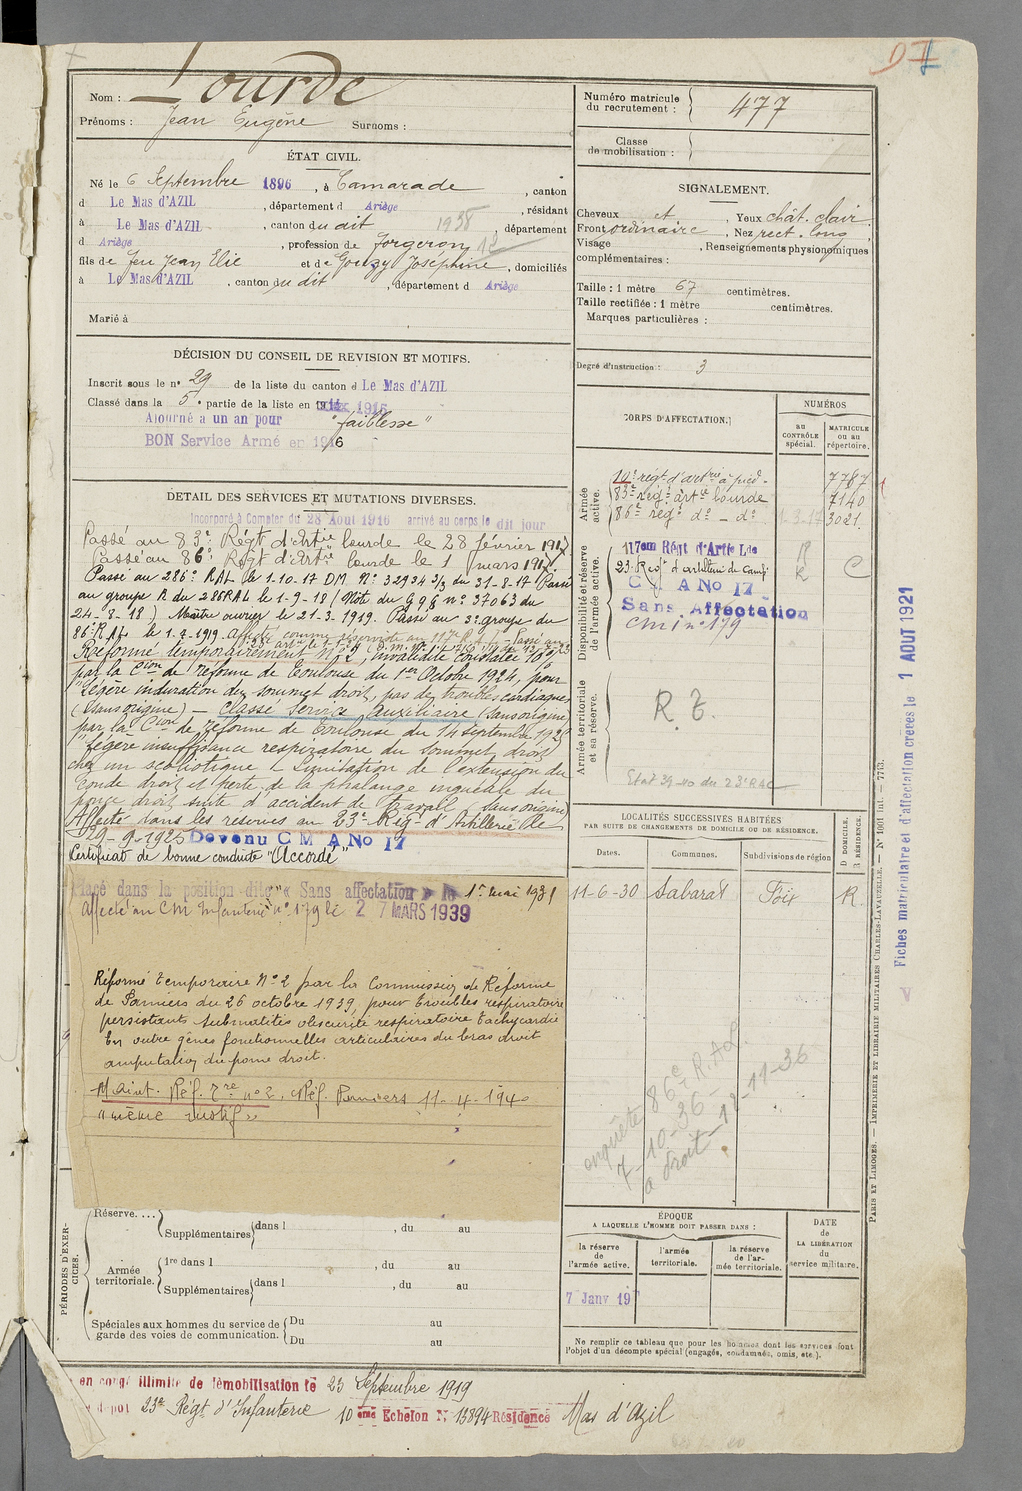 D I
Nom : Lourde
Prénoms : Jean Eugène Surnoms :
Numéro matricule du recrutement : 477
Classe de mobilisation :
ÉTAT CIVIL.
Né le 6 Septembre 1896, à Camarade, canton
d Le Mas d'AZIL, département d Ariège, résidant
à Le Mas d'AZIL, canton du dit 1938, département
d Ariège, profession de forgeron
fils de feu Jean Elie et de Gouzy Joséphine, domiciliés
à Le Mas d'AZIL, canton du dit, département d Ariège
Marié à
SIGNALEMENT.
Cheveux et, Yeux chât. clair
Front ordinaire, Nez rect. long
Visage, Renseignements physionomiques
complémentaires :
Taille : 1 mètre 67 centimètres.
Taille rectifiée : 1 mètre centimètres.
Marques particulières :
Degré d'instruction : 3
DÉCISION DU CONSEIL DE REVISION ET MOTIFS.
Inscrit sous le n° 29 de la liste du canton d Le Mas d'AZIL
Classé dans la 5e partie de la liste en 1915
Ajourné a un an pour "faiblesse"
BON Service Armé en 1916
DÉTAIL DES SERVICES ET MUTATIONS DIVERSES.
Incorporé à Compter du 28 Aout 1916 arrivé au corps le dit jour
Passé au 83e Régt d'Artie lourde le 28 février 1917
Passé au 86e Régt d'Artie lourde le 1 mars 1917
Passé au 286e RAL le 1-10-17 DM. N° 32934 3/3 du 31-8-17 Passé
au groupe R du 286 RAL le 1-9-18 (Note du GQG n° 37063 du
24-8-18) Maître ouvrier le 21-3-1919. Passé au 3e groupe du
86e RAL le 1-7-1919 Affecté comme réserviste au 117e R.A.L. Passé au
Réformé temporairement N° 2, invalidité constatée 10%
par la Cion de réforme de Toulouse du 1er Octobre 1924, pour
"Légère induration du sommet droit, pas de troubles cardiaques
(sans origine) — Classé Service Auxiliaire (sans origine)
par la Cion de réforme de Toulouse du 14 septembre 1925
"Légère insuffisance respiratoire du sommet droit
chez un scoliotique & limitation de l'extension du
coude droit et perte de la phalange unguéale du
pouce droit suite d'accident de travail (sans origine)
Affecté dans les réserves au 23e Rég. d'Artillerie le
29-9-1925 Devenu C M A No 17
Certificat de bonne conduite "Accordé"
Placé dans la position dite « Sans affectation » le 1er mai 1931
Affecté au CM Infanterie n° 179 le 27 MARS 1939
Réformé temporaire N° 2 par la Commission de Réforme
de Pamiers du 26 octobre 1939, pour troubles respiratoire
persistants submatités obscurité respiratoire tachycardie
En outre gênes fonctionnelles articulaires du bras droit
amputation du pouce droit.
Maint. Réf. Tre n° 2, Réf. Pamiers 11-4-1940
"même motif"
CORPS D'AFFECTATION.
NUMÉROS
au CONTRÔLE spécial.
MATRICULE ou au répertoire.
Armée active.
10e régt d'artrie à pied 7787
83e rég. artie lourde 7140
86e rég. do - do 1.3.17 3021
Disponibilité et réserve de l'armée active.
117em Régt d'Artie Lde R
23e Regt d'artillerie de Campe R C
C M A No 17
Sans Affectation
CM In° 179
Armée territoriale et sa réserve.
R. T.
Etat 39-40 du 23e RAC
LOCALITÉS SUCCESSIVES HABITÉES
PAR SUITE DE CHANGEMENTS DE DOMICILE OU DE RÉSIDENCE.
Dates. Communes. Subdivisions de région D DOMICILE. R RÉSIDENCE.
11-6-30 Sabarat Foix R.
enquête 86e R.A.L.
7-10-36-
a droit - 12-11-36
ÉPOQUE
A LAQUELLE L'HOMME DOIT PASSER DANS :
la réserve de l'armée active.
l'armée territoriale.
la réserve de l'armée territoriale.
DATE de LA LIBÉRATION du service militaire.
7 Janv 19
Ne remplir ce tableau que pour les hommes dont les services font
l'objet d'un décompte spécial (engagés, condamnés, omis, etc.).
PÉRIODES D'EXERCICES.
Réserve....
Supplémentaires dans l , du au
Armée territoriale.
1re dans l , du au
Supplémentaires dans l , du au
Spéciales aux hommes du service de garde des voies de communication. Du au
Du au
en congé illimité de démobilisation le 23 Septembre 1919
dépot 23e Régt d'Infanterie 10 eme Echelon N° 13894 Résidence Mas d'Azil
PARIS ET LIMOGES. — IMPRIMERIE ET LIBRAIRIE MILITAIRES CHARLES-LAVAUZELLE. — N° 1001 Int. — 7713.
Fiches matriculaire et d'affectation créées le 1 AOUT 1921